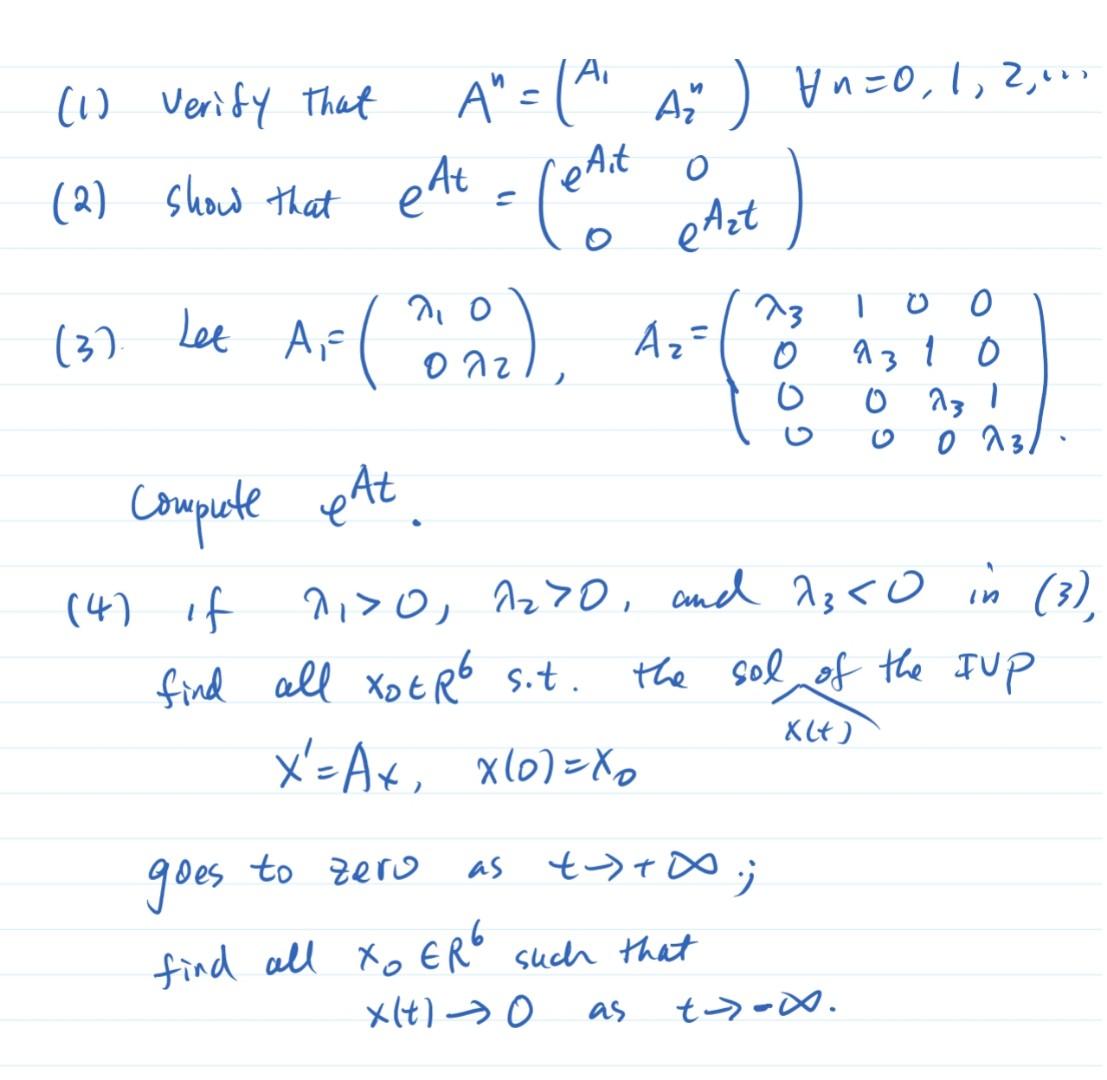 (1) Verify that A^n = (A₁ A₂^n) ∀n=0, 1, 2, ...
(2) Show that e^{At} = (e^{A₁t} 0
0 e^{A₂t})
(3). Let A₁ = (λ₁ 0
0 λ₂), A₂ = (λ₃ 1 0 0
0 λ₃ 1 0
0 0 λ₃ 1
0 0 0 λ₃).
Compute e^{At}.
(4) if λ₁>0, λ₂>0, and λ₃<0 in (3),
find all x₀∈R⁶ s.t. the sol of the IVP
x(t)
x'=Ax, x(0)=x₀
goes to zero as t→+∞;
find all x₀∈R⁶ such that
x(t)→0 as t→-∞.